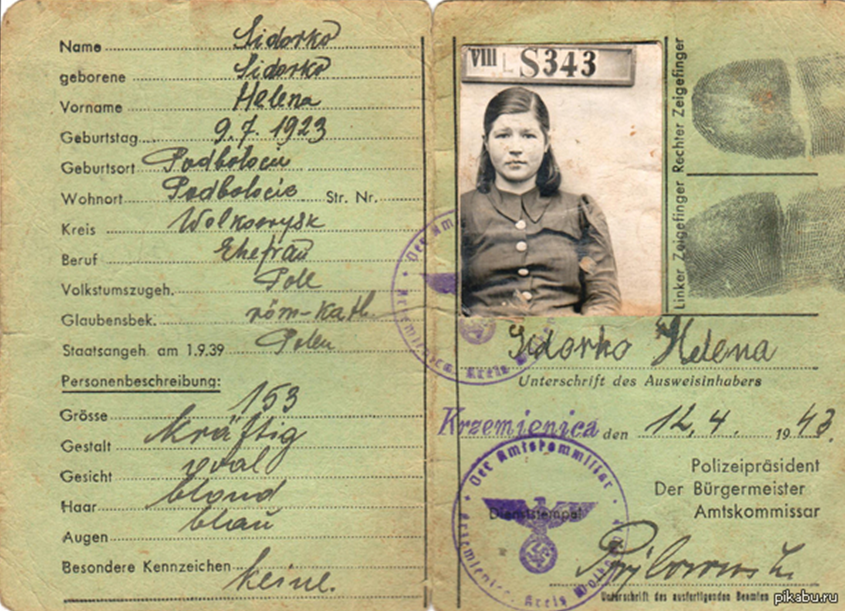 Name Sidorko
geborene Sidorko
Vorname Helena
Geburtstag 9.7.1923
Geburtsort Podbolocie
Wohnort Podbolocie Str. Nr.
Kreis Wolkowysk
Beruf Ehefrau
Volkstumszugeh. Pole
Glaubensbek. röm-kath.
Staatsangeh. am 1.9.39 Polen
Personenbeschreibung:
Grösse 153
Gestalt kräftig
Gesicht oval
Haar blond
Augen blau
Besondere Kennzeichen keine.
VIII L S343
Rechter Zeigefinger
Linker Zeigefinger
Der Amt
Krzemienica, Kreis W
Sidorko Helena
Unterschrift des Ausweisinhabers
Krzemienica den 12.4. 1943.
Polizeipräsident
Der Bürgermeister
Amtskommissar
Der Amtskommissar
Krzemienica, Kreis Wolkow
Dienststempel
Unterschrift des ausfertigenden Beamten
pikabu.ru